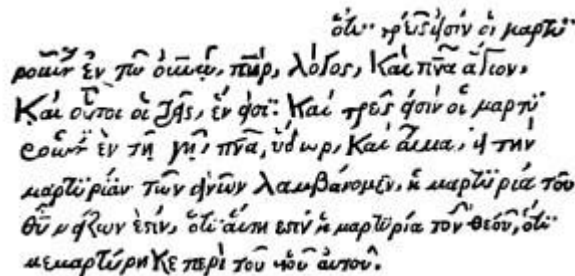 ὅτι τρεῖς εἰσιν οἱ μαρτυ
ροῦντες ἐν τῷ οὐρανῷ, πηρ, λόγος, καὶ πνα ἅγιον,
Καὶ οὗτοι οἱ τρεῖς, ἕν εἰσι· Καὶ τρεῖς εἰσὶν οἱ μαρτυ
ροῦντες ἐν τῇ γῇ, πνα, ὕδωρ, Καὶ αἷμα, εἰ τὴν
μαρτυρίαν τῶν ἀνων λαμβάνομεν, ἡ μαρτυρία τοῦ
θυ μείζων ἐστίν, ὅτι αὕτη ἐστὶν ἡ μαρτυρία τοῦ θεοῦ, ὅτι
μεμαρτύρηκε περὶ τοῦ υἱοῦ αὐτοῦ.